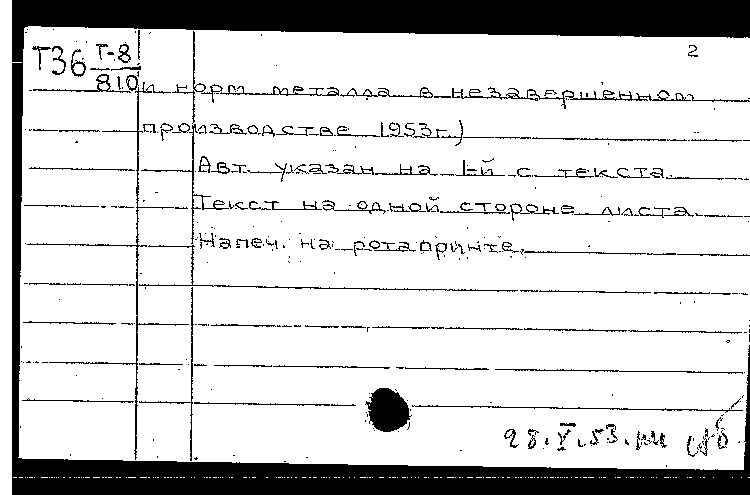 2
Т36 Т-8
810
и норм металла в незавершенном
производстве 1953г.)
Авт. указан на 1-й с текста.
Текст на одной стороне листа.
Напеч. на ротапринте.
28.V.53.